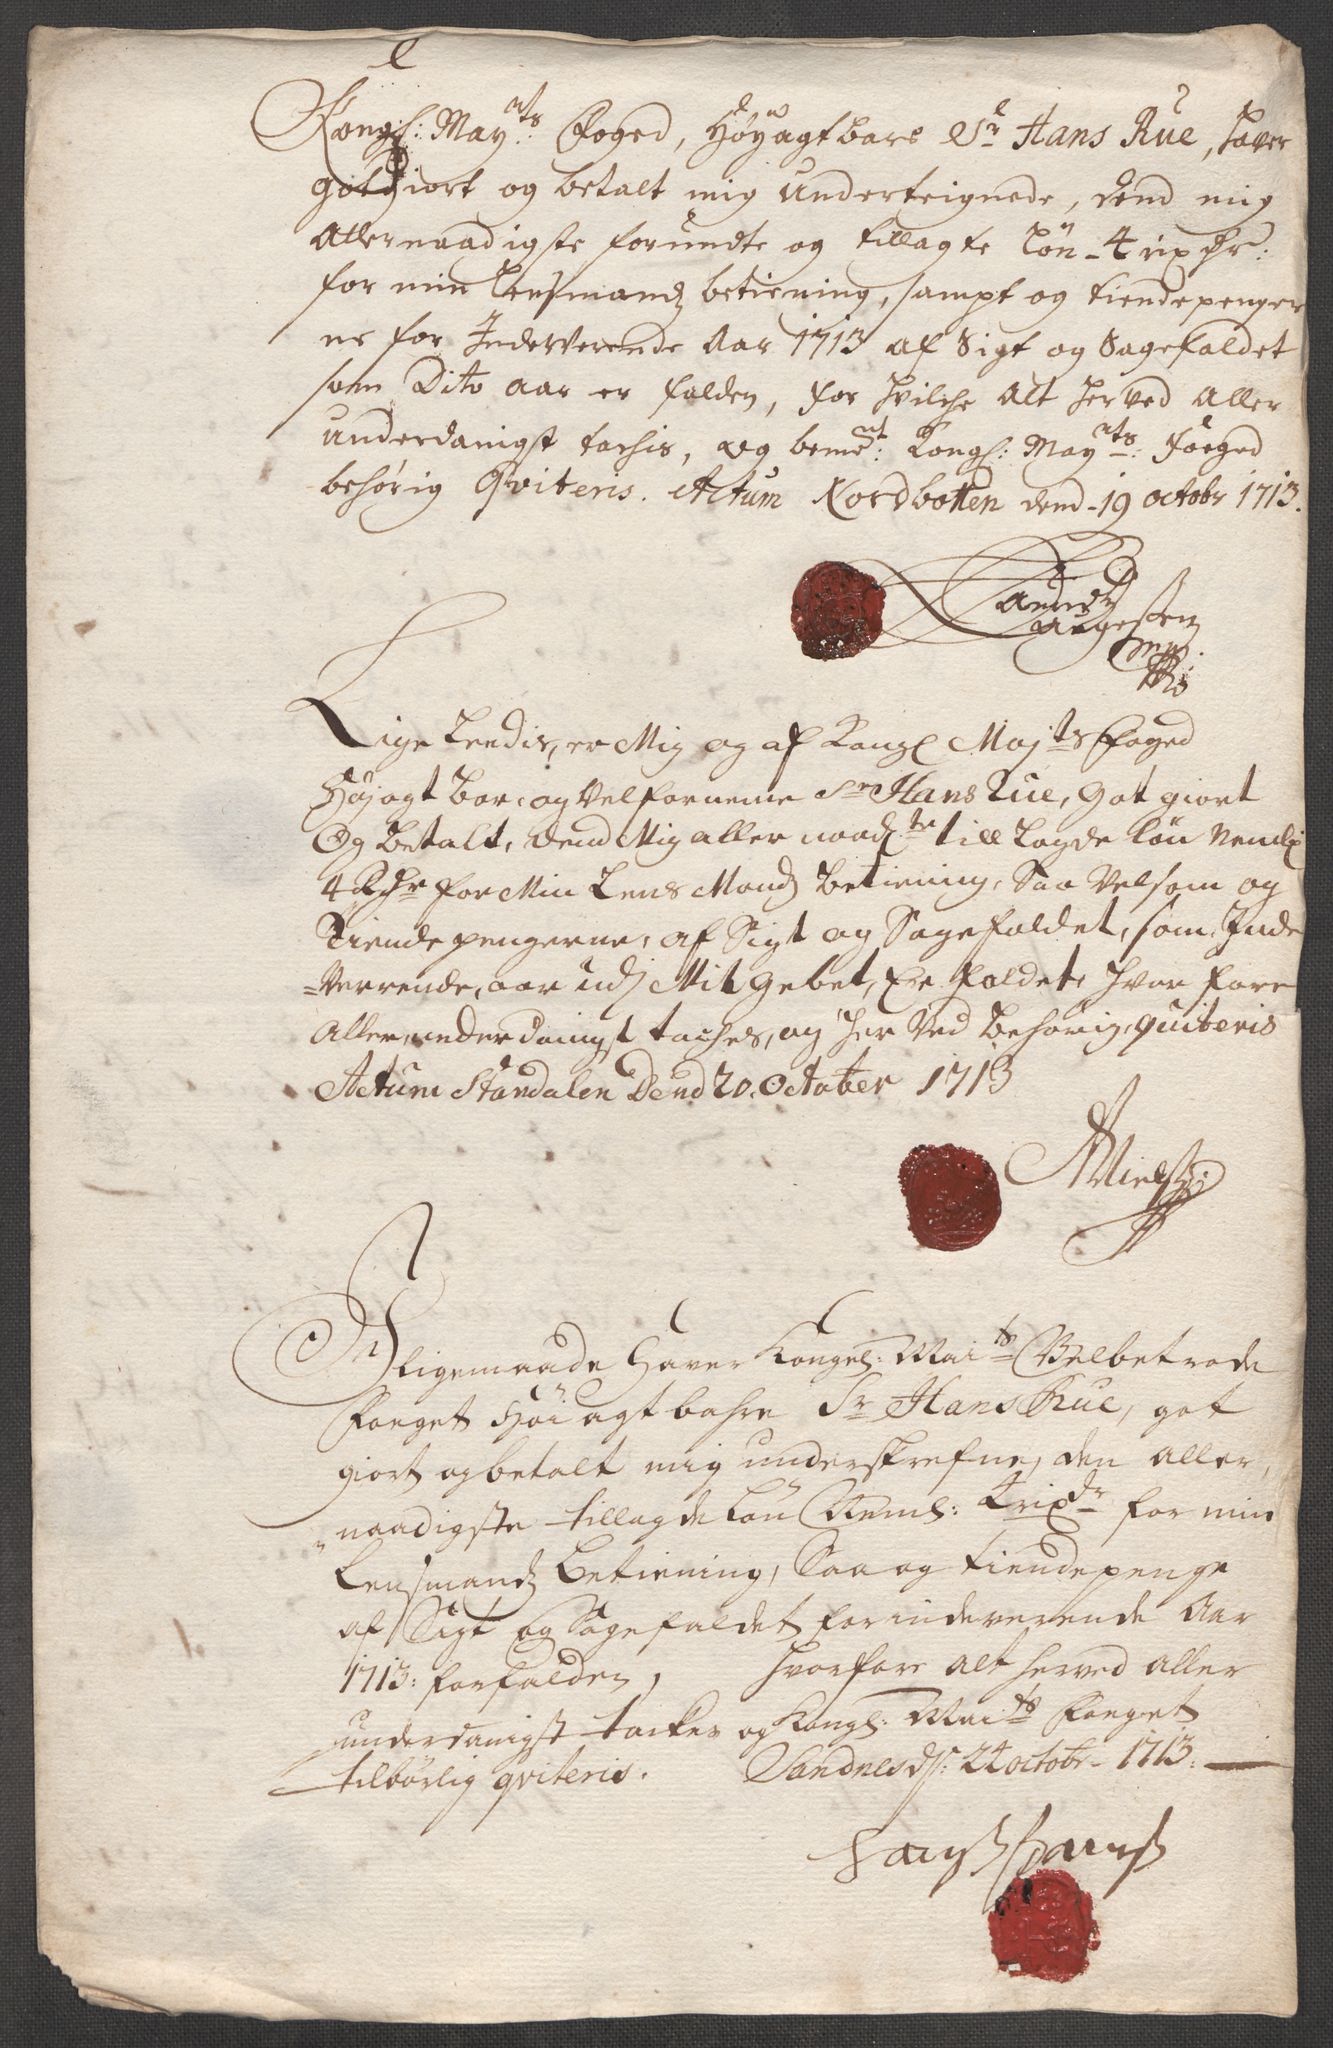 Kongl: May.ts Foged, Høyagtbare Sr Hans Rue, hafver
godtgiort og betalt mig underteignede, dend mig
allernaadigste forundte og tillagte løn - 4 rixdr:
for min Lensmandz betiening, sampt og tiendepenger
ne for Indeverende Aar 1713 af Sigt og Sagefaldet
som Dito aar er falden, for hvilche alt herved aller
underdanigst tachis, og bemt: Kongl: Mayts: Foeged
behørig Qviteris. Actum Nordbotten dend - 19 octobr 1713.
Anders
Aagesen
mp
Lige Leedis, er Mig og af Kongl Maj ts Foged
Høj agt bar, og Velfornemme Sr Hans Rue, got giort
Og Betalt, dend Mig aller naad ste till Lagde løn Neml
4 Rdr for Min Lens Mandz Betiening, Saa Velsom og
Tiende pengerne, af Sigt og Sagefaldet, som Inde
-verrende, aar udj Mit gebet, Er faldet, hvor fore
aller underdanigst taches, og her Ved Behørig, quiteris
Actum Standalen Dend 20. October 1713
A Niels
I ligemaade Haver Kongel: Mai ts Velbetrode
Fogget Høi agt bahre Sr Hans Rue, got
giort og betalt mig underskrefne, den aller,
naadigste tillagde Løn Neml: 4 rixdr for min
Lensmandz Betiening, Saa og tiendepenge
af Sigt og Sagefaldet for indeverende Aar
1713: forfalden, hvorfore alt herved aller
underdanigst takkes og Kongl: Mai ts Fogget
tilbørlig qviteris. Sandnes ds: 24 octobr - 1713: